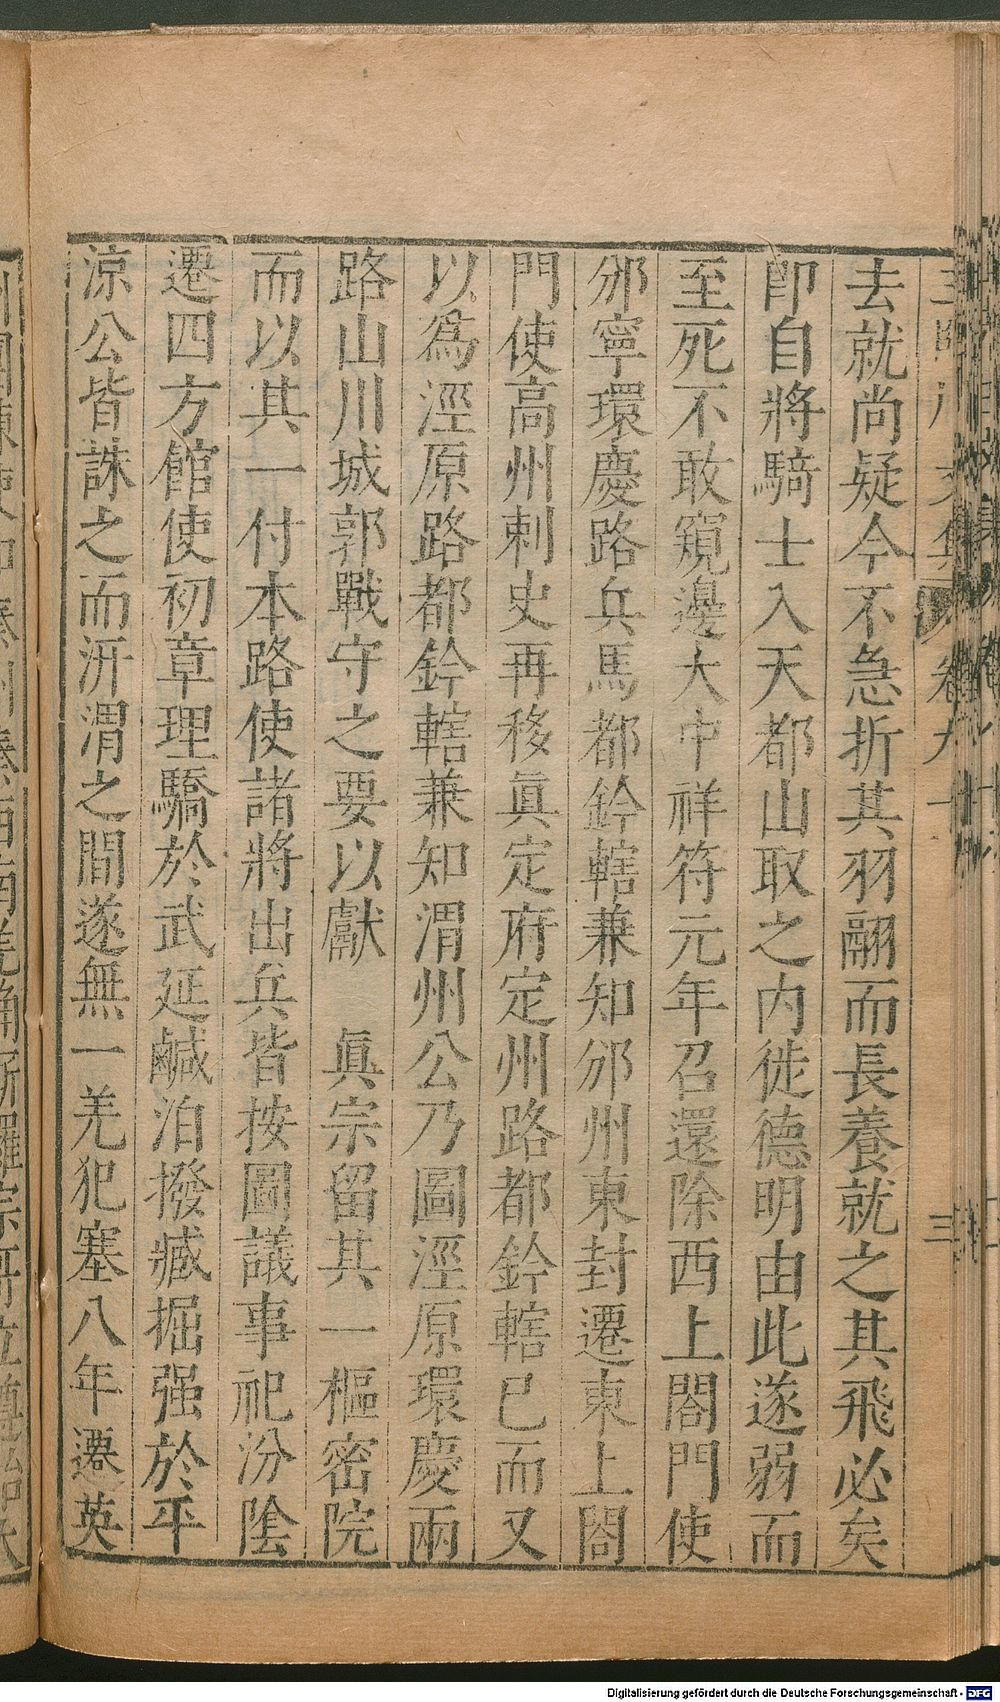 去就尚疑今不急折其羽翮而長養就之其飛必矣
卽自將騎士入天都山取之內徙德明由此遂弱而
至死不敢窺邊大中祥符元年召還除西上閤門使
邠寧環慶路兵馬都鈐轄兼知邠州東封遷東上閤
門使高州刺史再移眞定府定州路都鈐轄已而又
以爲涇原路都鈐轄兼知渭州公乃圖涇原環慶兩
路山川城郭戰守之要以獻　眞宗留其一樞密院
而以其一付本路使諸將出兵皆按圖議事祀汾隂
遷四方館使初章理驕於武延鹹泊撥臧掘强於平
涼公皆誅之而汧渭之間遂無一羌犯塞八年遷英
卷九
三
Digitalisierung gefördert durch die Deutsche Forschungsgemeinschaft - DFG